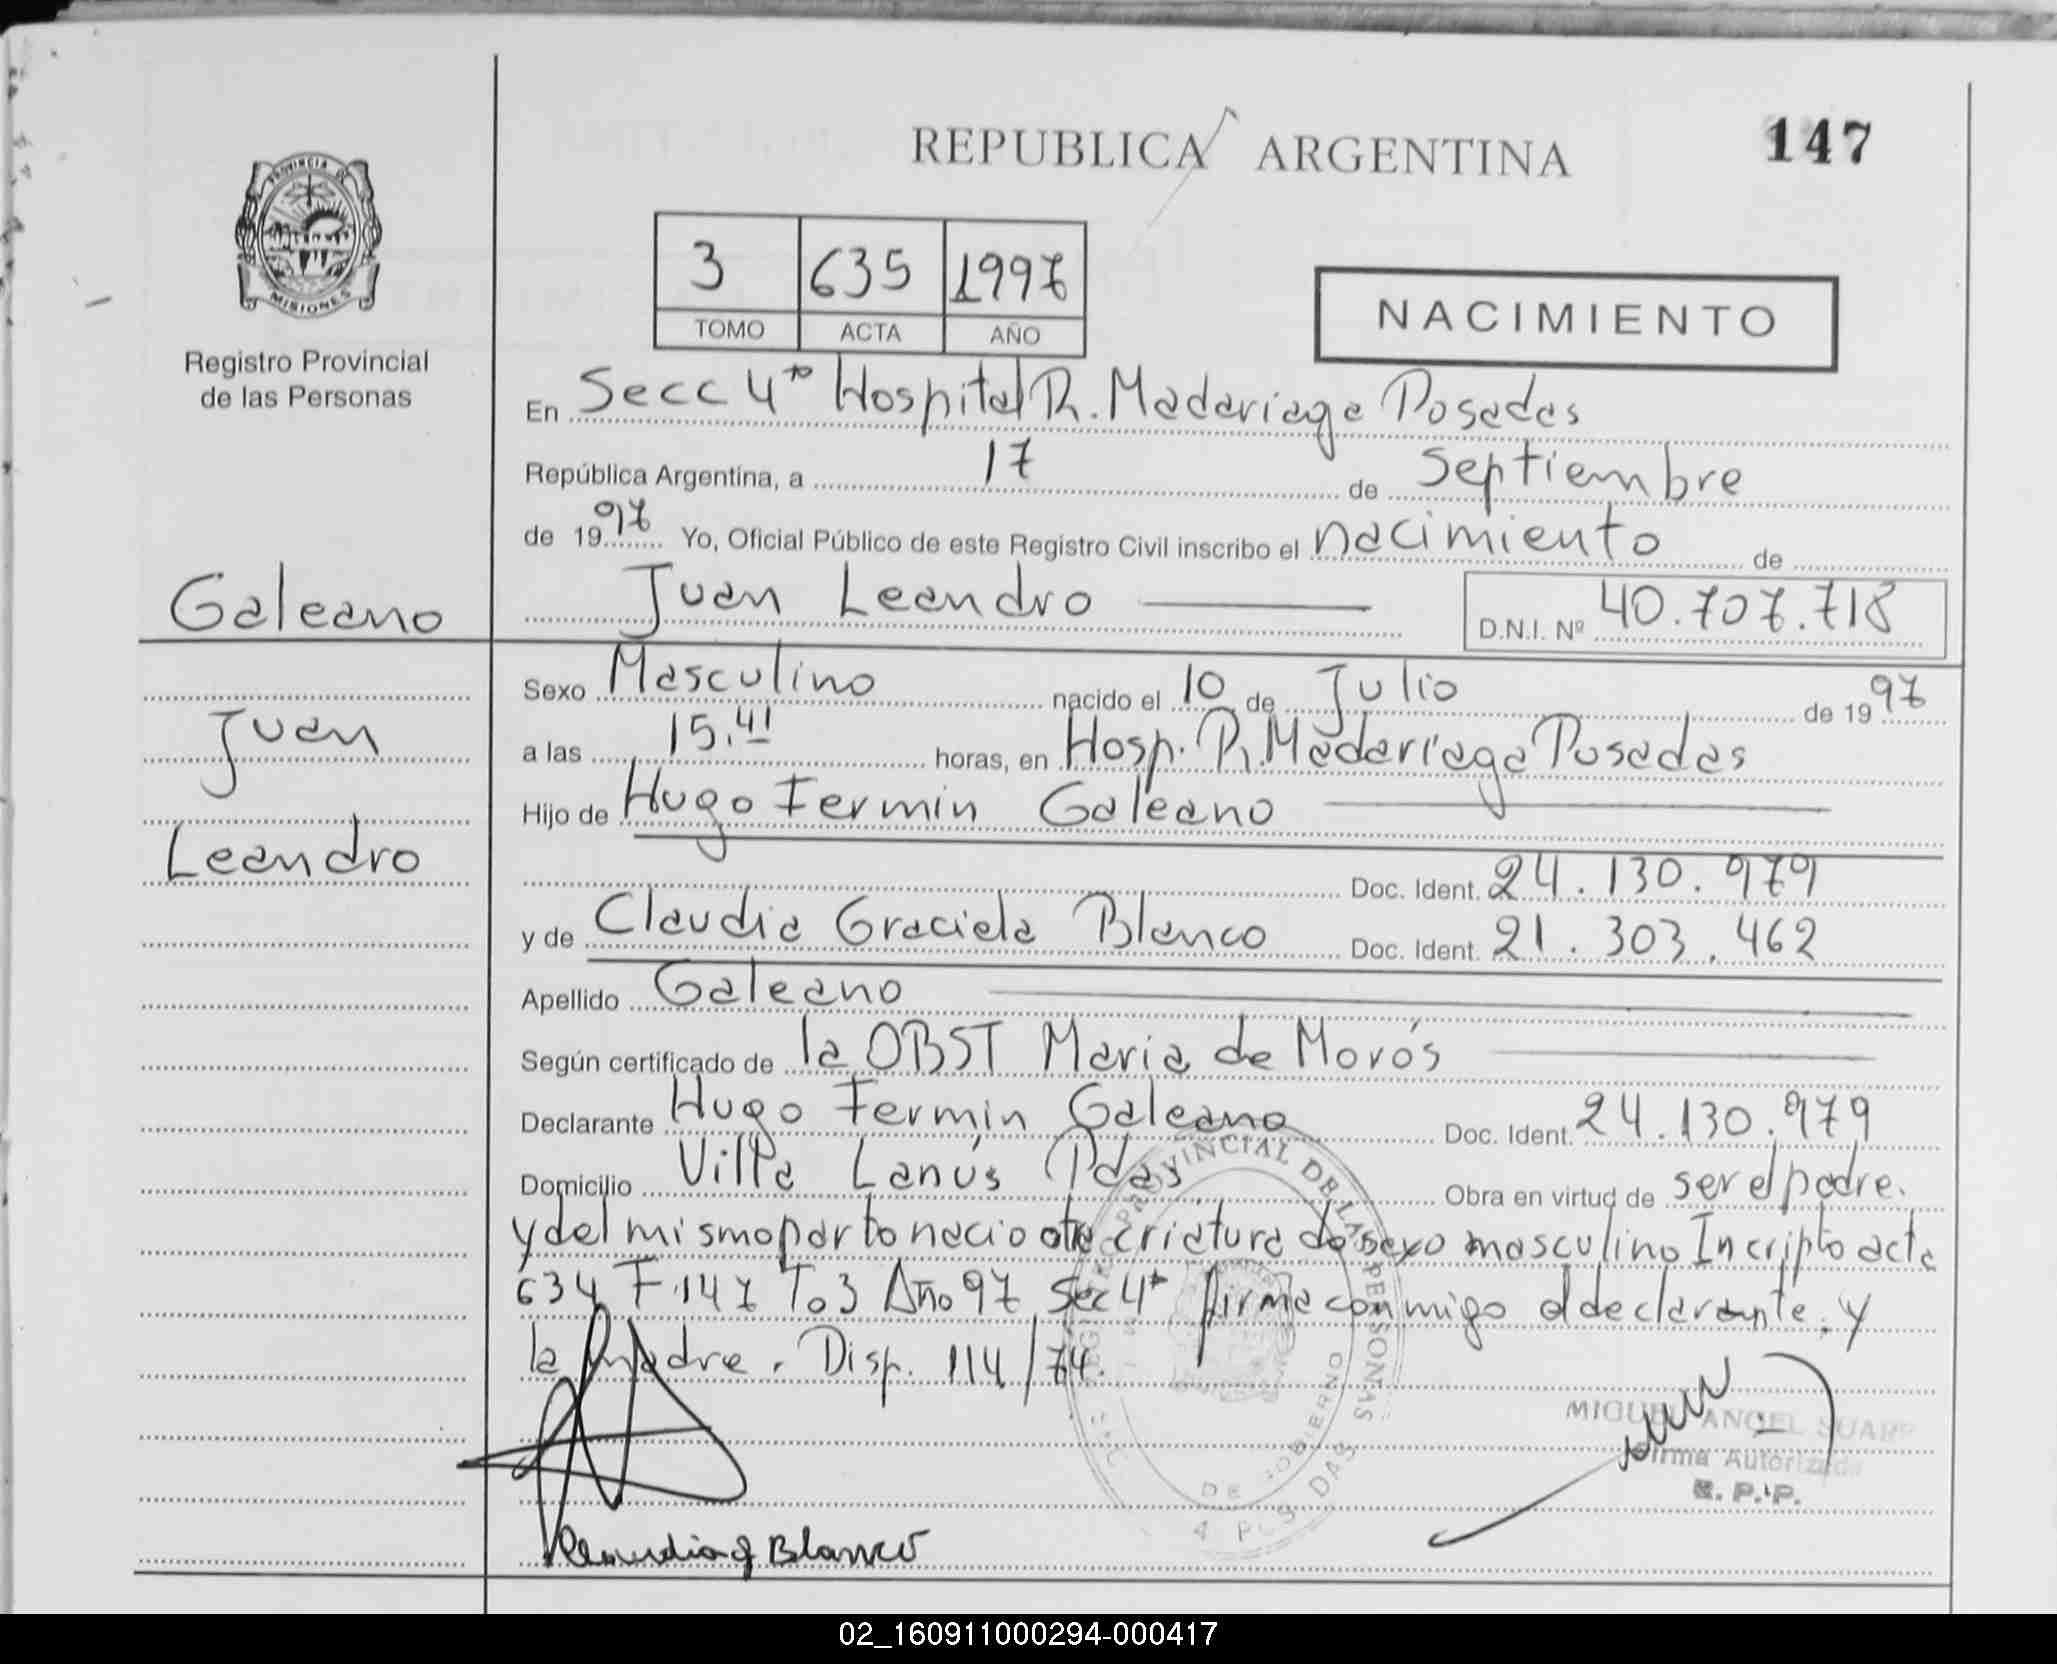 REPUBLICA ARGENTINA
147
PROVINCIA DE
MISIONES
Registro Provincial
de las Personas
3 635 1997
TOMO ACTA AÑO
NACIMIENTO
En Secc 4ta Hospital R. Madariaga Posadas
República Argentina, a 17 de Septiembre
de 1997 Yo, Oficial Público de este Registro Civil inscribo el nacimiento de
Galeano
Juan Leandro
D.N.I. Nº 40.707.718
Sexo Masculino nacido el 10 de Julio de 1997
Juan
a las 15.41 horas, en Hosp. R. Madariaga Posadas
Hijo de Hugo Fermin Galeano
Leandro
Doc. Ident. 24.130.979
y de Claudia Graciela Blanco Doc. Ident. 21.303.462
Apellido Galeano
Según certificado de la OBST Maria de Morós
Declarante Hugo Fermin Galeano Doc. Ident. 24.130.979
Domicilio Villa Lanús Pdas Obra en virtud de ser el padre.
y del mismo parto nacio otra criatura de sexo masculino Incripto acta
634 F.147 To3 Año 97 Sec 4ta firma conmigo el declarante. y
la madre. Disp. 114/74.
PROVINCIAL DE LAS PERSONAS
DE GOBIERNO
MIGUEL ANGEL SUAR
Firma Autorizada
R. P. P.
Claudia G Blanco
02_160911000294-000417